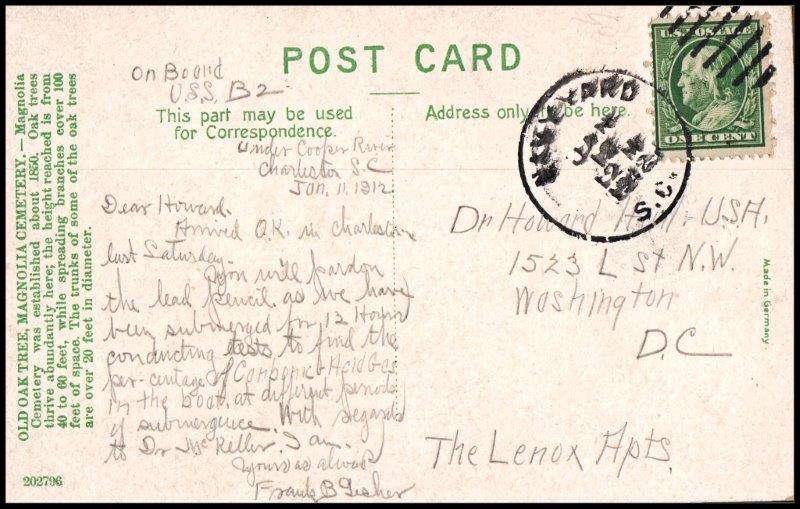 POST CARD
This part may be used
for Correspondence.
Address only to be here.
OLD OAK TREE, MAGNOLIA CEMETERY.—Magnolia
Cemetery was established about 1850. Oak trees
thrive abundantly here; the height reached is from
40 to 60 feet, while spreading branches cover 100
feet of space. The trunks of some of the oak trees
are over 20 feet in diameter.
202796
On Board
U.S.S. B2
Under Cooper River
Charleston S.C
Jan. 11, 1912
Dear Howard.
Arrived O.K. in Charleston
last Saturday.
You will pardon
the lead pencil as we have
been submerged for 12 Hours
conducting tests to find the
per-centage of Carbonic Acid Gas
in the boat, at different periods
of submergence. With regards
to Dr McKeller. I am.
Yours as always
Frank B
U.S. POSTAGE
ONE CENT
NAVY YARD
S.C.
Dr Howard U.S.A.
1523 L St N.W.
Washington
D.C
The Lenox Apts.
Made in Germany